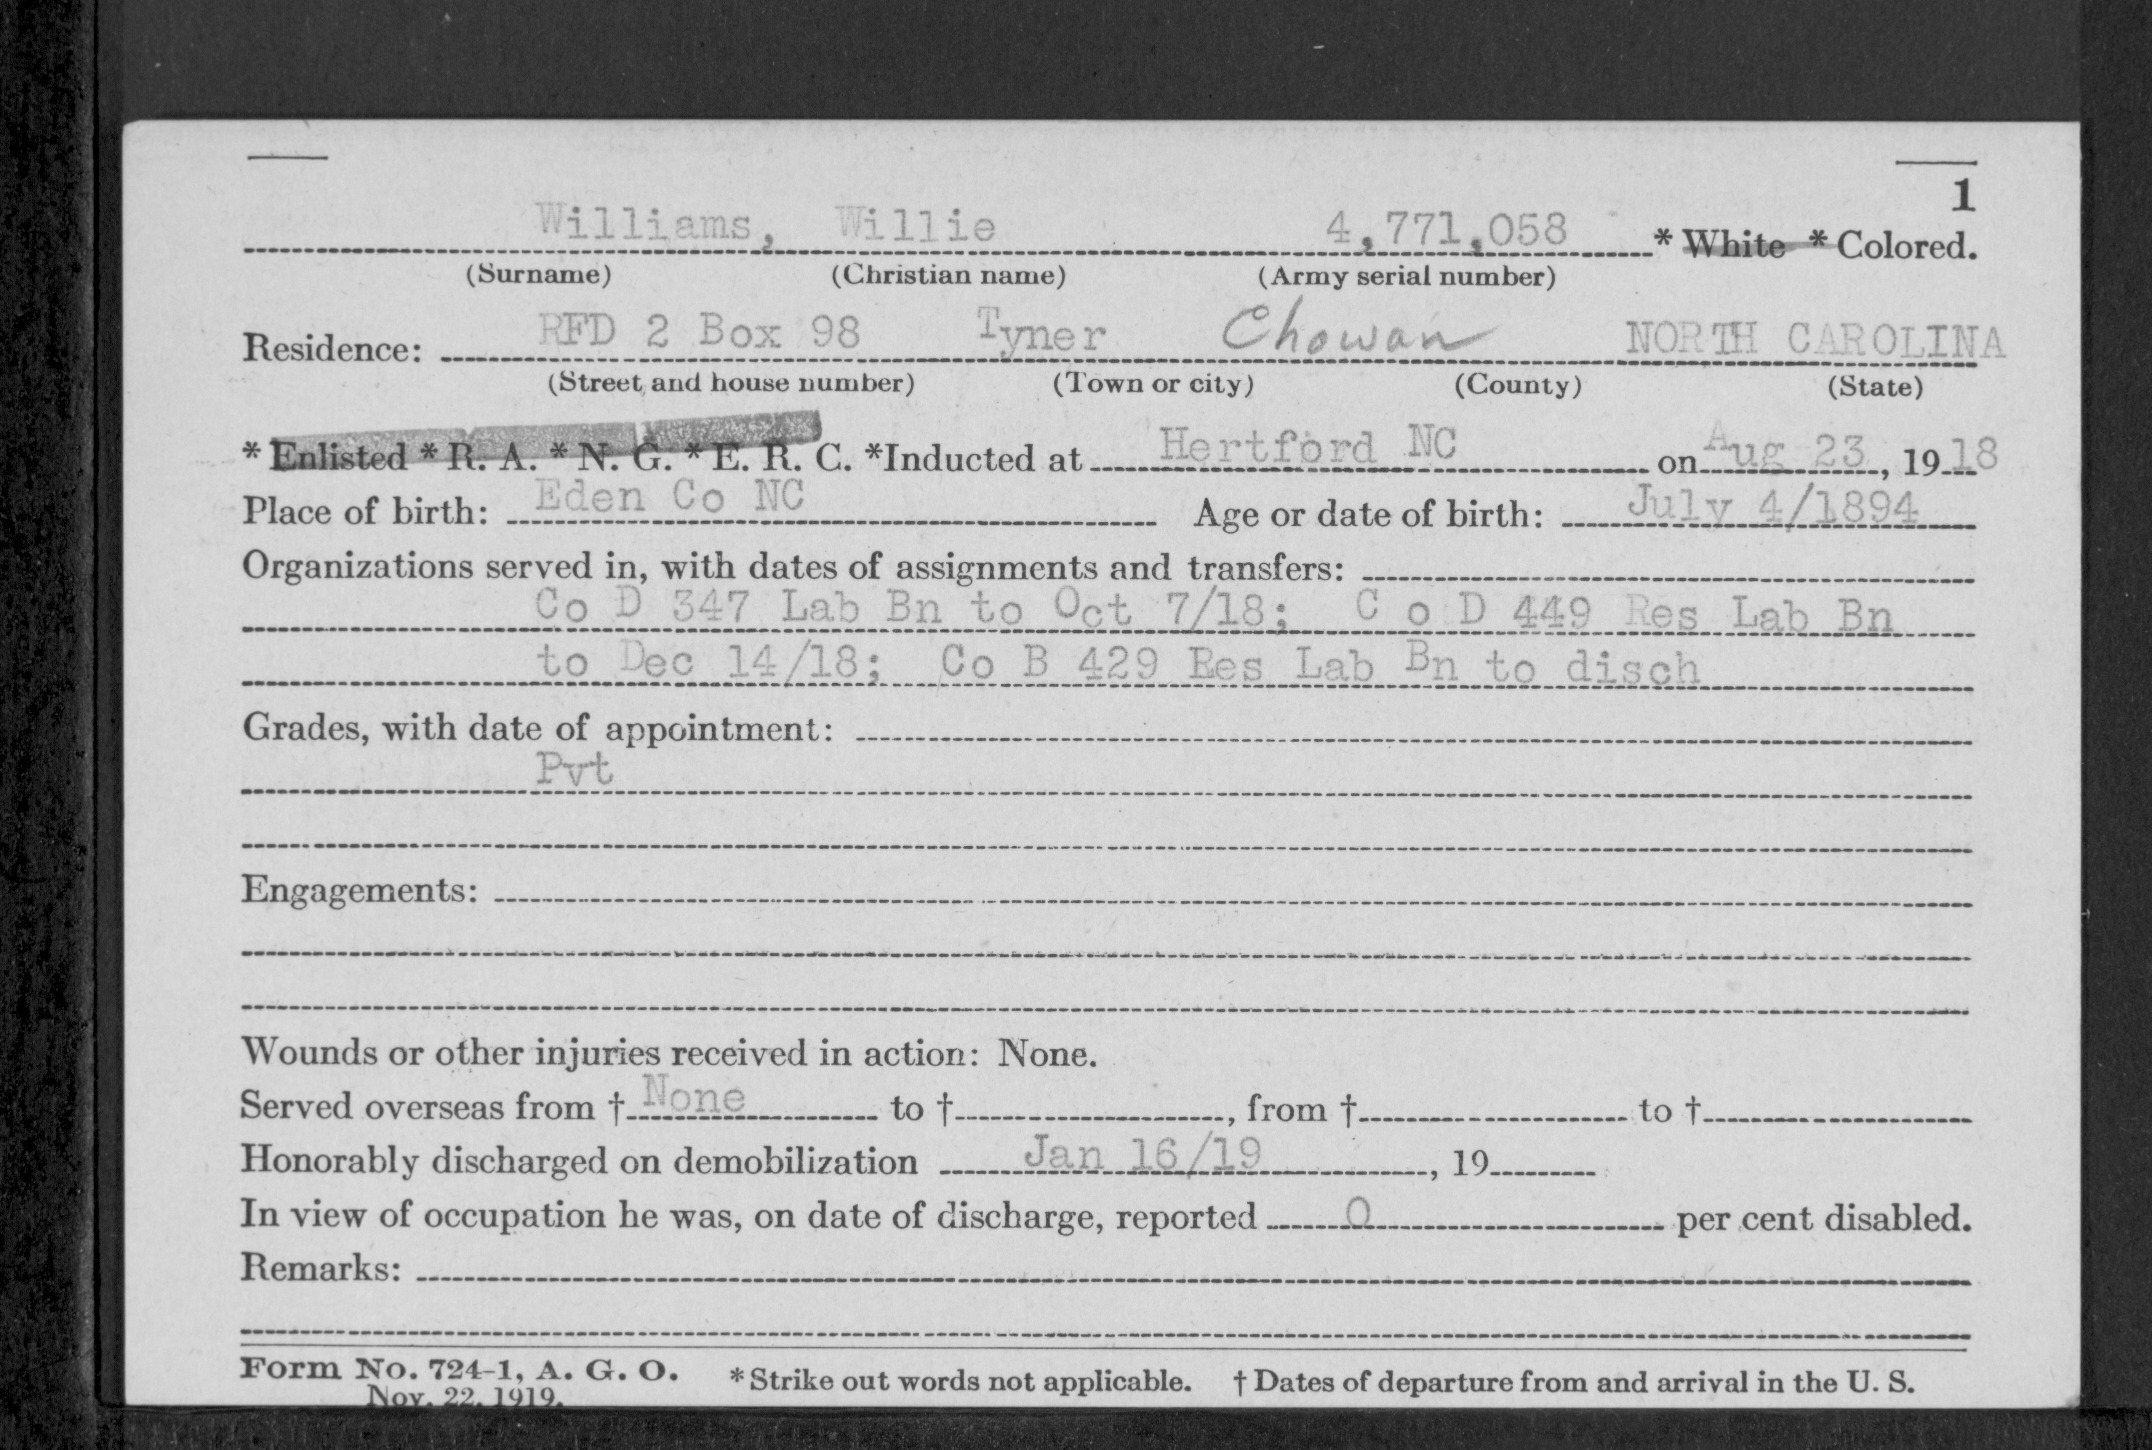 1
Williams, Willie 4,771,058 * White * Colored.
(Surname) (Christian name) (Army serial number)
Residence: RFD 2 Box 98 Tyner Chowan NORTH CAROLINA
(Street and house number) (Town or city) (County) (State)
* Enlisted * R. A. * N. G. * E. R. C. *Inducted at Hertford NC on Aug 23, 1918
Place of birth: Eden Co NC Age or date of birth: July 4/1894
Organizations served in, with dates of assignments and transfers:
Co D 347 Lab Bn to Oct 7/18; C o D 449 Res Lab Bn
to Dec 14/18; Co B 429 Res Lab Bn to disch
Grades, with date of appointment:
Pvt
Engagements:
Wounds or other injuries received in action: None.
Served overseas from † None to †, from † to †
Honorably discharged on demobilization Jan 16/19, 19
In view of occupation he was, on date of discharge, reported 0 per cent disabled.
Remarks:
Form No. 724-1, A. G. O. * Strike out words not applicable. † Dates of departure from and arrival in the U. S.
Nov. 22, 1919.